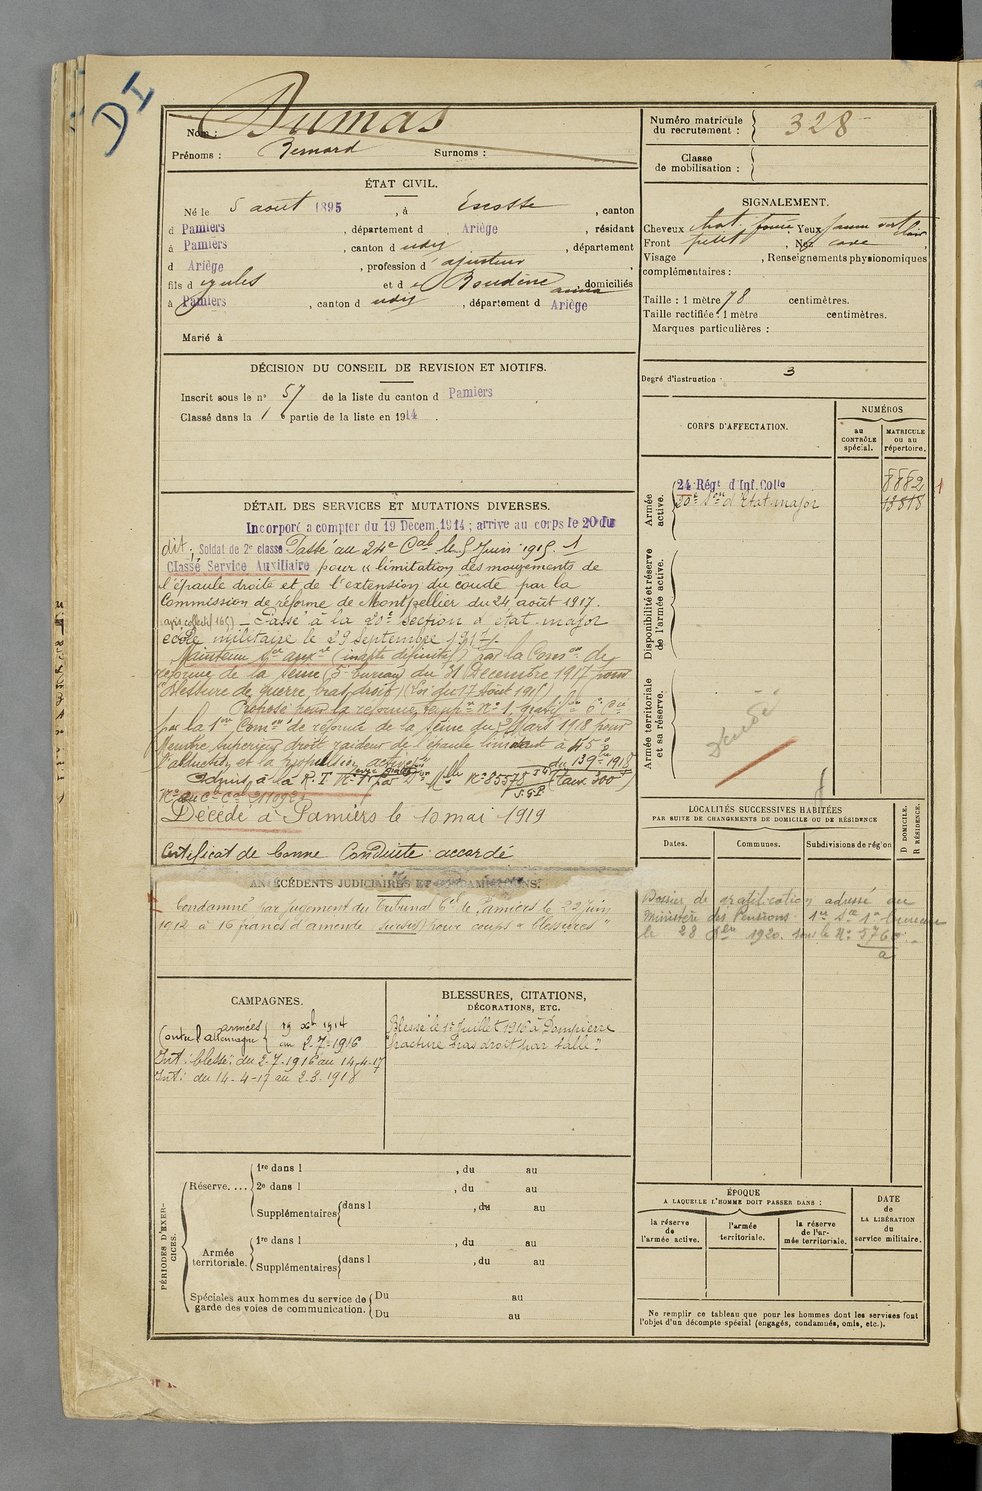 DI
Nom : Dumas
Prénoms : Bernard Surnoms :
Numéro matricule du recrutement : 328
Classe de mobilisation :
ÉTAT CIVIL.
Né le 5 août 1895, à Escosse, canton
d Pamiers, département d Ariège, résidant
à Pamiers, canton d udy, département
d Ariège, profession d ajusteur
fils d et d e Boudène anna, domiciliés
à Pamiers, canton d udy, département d Ariège
Marié à
SIGNALEMENT.
Cheveux chat. foncé Yeux jaune vert clair
Front petit, Nez cave
Visage , Renseignements physionomiques
complémentaires :
Taille : 1 mètre 78 centimètres.
Taille rectifiée : 1 mètre centimètres.
Marques particulières :
Degré d'instruction : 3
DÉCISION DU CONSEIL DE REVISION ET MOTIFS.
Inscrit sous le n° 57 de la liste du canton d Pamiers
Classé dans la 1e partie de la liste en 1914.
CORPS D'AFFECTATION.
NUMÉROS
au CONTRÔLE spécial.
MATRICULE ou au répertoire.
Armée active.
24 Régt d'Inf. Colle 8882
20e Son d'Etat major 13818
Disponibilité et réserve de l'armée active.
Armée territoriale et sa réserve.
Décédé
DÉTAIL DES SERVICES ET MUTATIONS DIVERSES.
Incorporé a compter du 19 Décem. 1914 ; arrivé au corps le 20 du
dit ; Soldat de 2e classe Passé au 24e Cal le 5 Juin 1915. 1
Classé Service Auxiliaire pour « limitation des mouvements de
l'épaule droite et de l'extension du coude par la
Commission de réforme de Montpellier du 24 août 1917.
(avis collectif 16 ) – Passé à la 20e section d'état-major
école militaire le 29 septembre 1917.
Maintenu Sce auxre (inapte définitif) par la Comon de
réforme de la Seine (3e bureau) du 31 Décembre 1917 pour
"Blessure de guerre, bras droit" (Loi du 17 Août 1915)
Proposé pour la réforme n° 1, gratif
par la 1re Comon de réforme de la Seine du 2 Mars 1918 pour
Membre supérieur droit raideur de l'épaule limitant à 45°
l'abduction et la propulsion active
Admis à la R.T. N° 1 avec gratification par Don Mlle N° 85575 du 13 9bre 1918 (taux 300 f)
S.G.P.
N° au Ct Cl 211092
Décédé à Pamiers le 10 mai 1919
Certificat de bonne Conduite : accordé
ANTÉCÉDENTS JUDICIAIRES ET CONDAMNATIONS.
Condamné par jugement du Tribunal Cel de Pamiers le 22 juin
1912 à 16 francs d'amende (sursis) pour coups & blessures
LOCALITÉS SUCCESSIVES HABITÉES
PAR SUITE DE CHANGEMENTS DE DOMICILE OU DE RÉSIDENCE
Dates. Communes. Subdivisions de région
D DOMICILE.
R RÉSIDENCE.
Dossier de gratification adressé au
Ministère des Pensions 1re Don 1er bureau
le 28 1920. sous le N° 5760
a
CAMPAGNES.
Contre l'allemagne armées 19 Xbre 1914
au 2-7-1916
Int : blessé : du 2-7-1916 au 14-4-17
Int : du 14-4-17 au 2-3-1918
BLESSURES, CITATIONS,
DÉCORATIONS, ETC.
Blessé le 1er Juillet 1916 à Dompierre
"fracture bras droit par balle"
PÉRIODES D'EXERCICES.
Réserve....
1re dans l , du au
2e dans l , du au
Supplémentaires dans l , du au
Armée territoriale.
1re dans l , du au
Supplémentaires dans l , du au
Spéciales aux hommes du service de garde des voies de communication.
Du au
Du au
ÉPOQUE
A LAQUELLE L'HOMME DOIT PASSER DANS :
la réserve de l'armée active.
l'armée territoriale.
la réserve de l'armée territoriale.
DATE de LA LIBÉRATION du service militaire.
Ne remplir ce tableau que pour les hommes dont les services font
l'objet d'un décompte spécial (engagés, condamnés, omis, etc.).